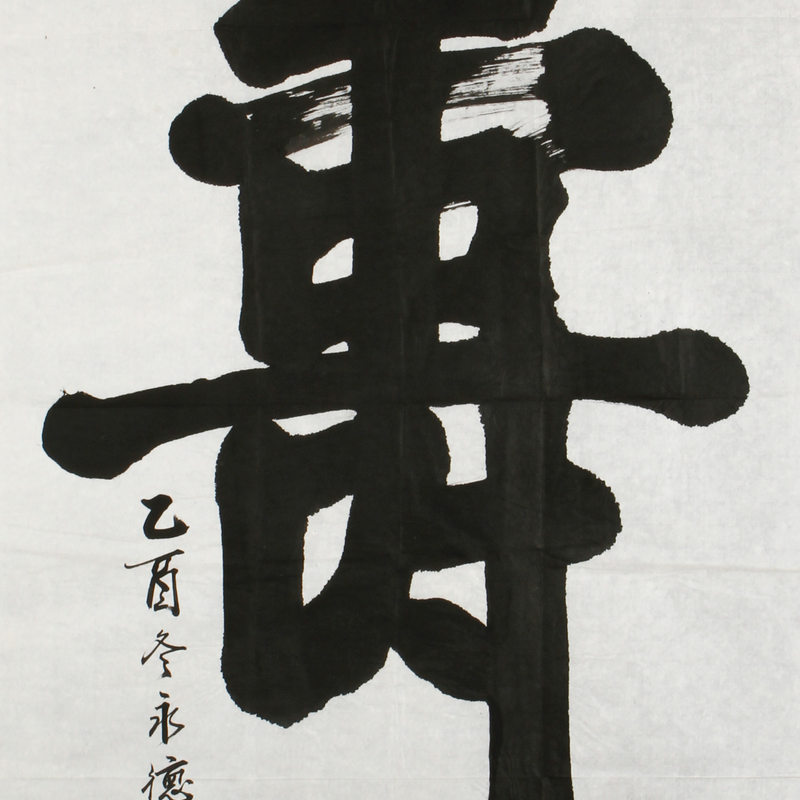 壽
乙酉冬永德